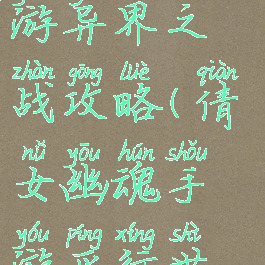 游异界之
zhàn gōng lüè qiàn
战攻略(倩
nǚ yōu hún shǒu
女幽魂手
yóu píng xíng shì
游平行世